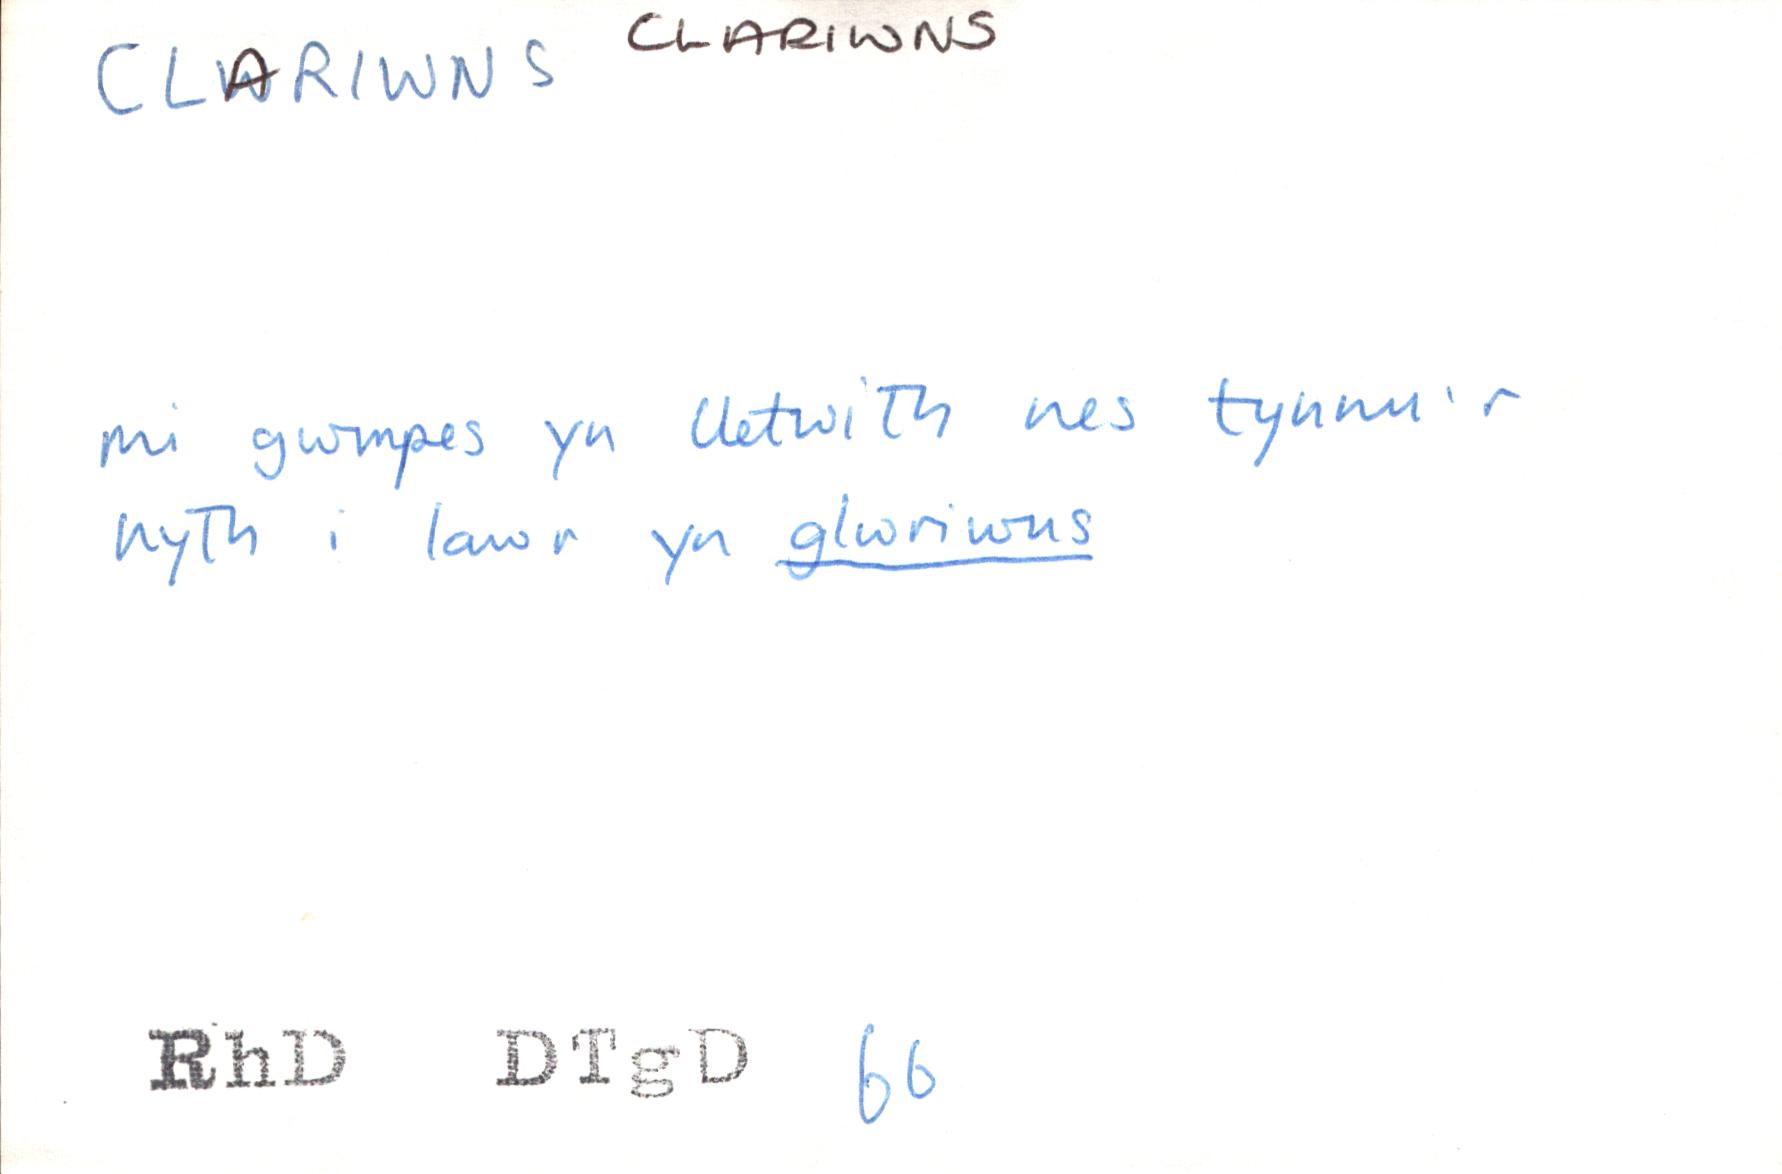 CLARIWNS CLARIWNS
mi gwmpes yn lletwith nes tynnu'r
nyth i lawr yn glwriwns
RhD DTgD 66